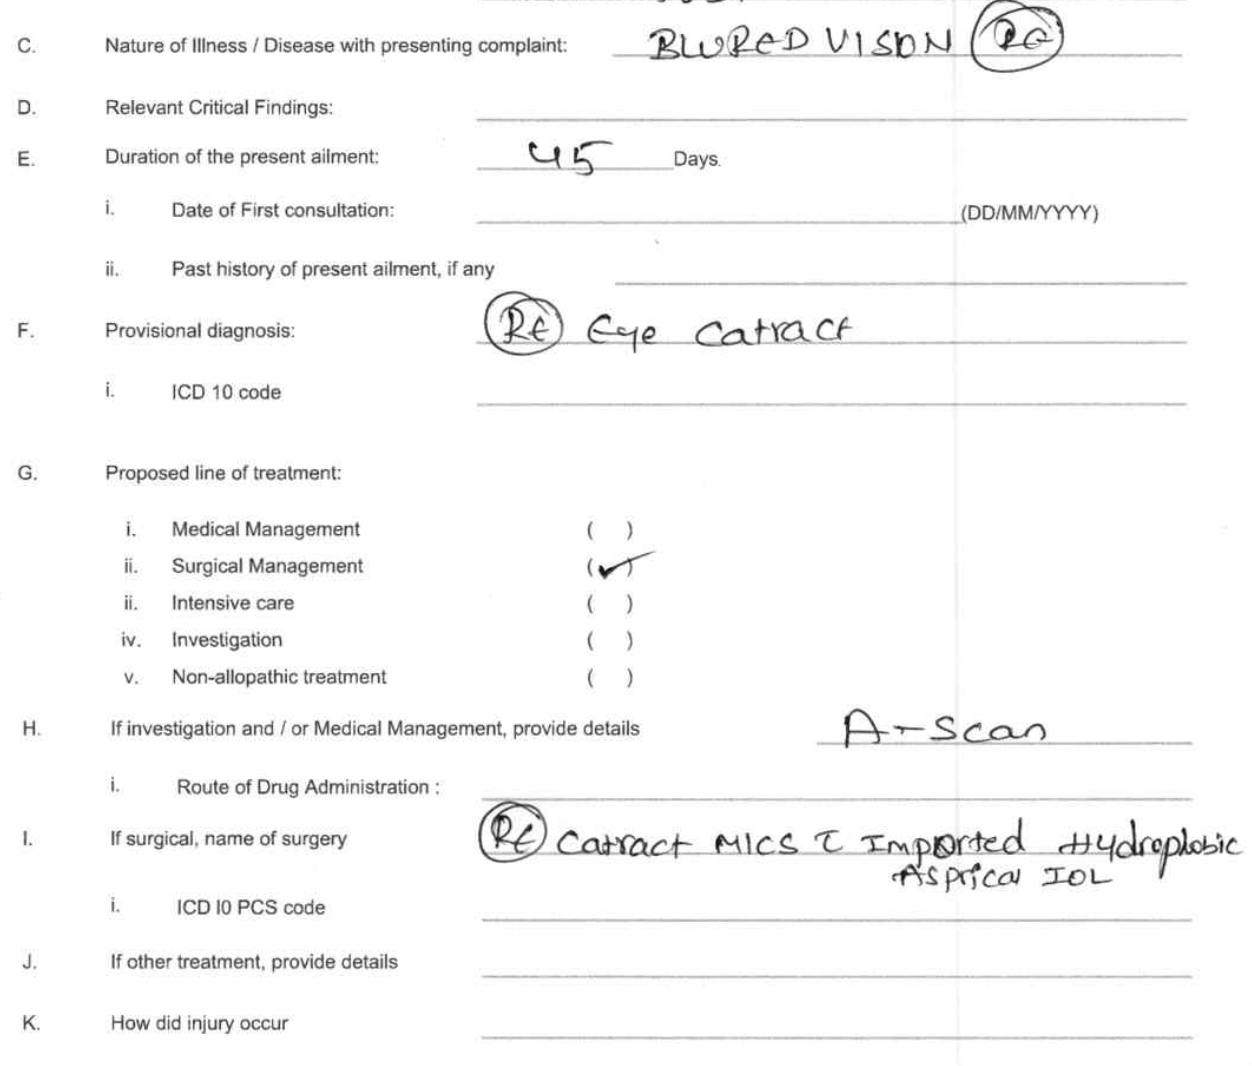 C. Nature of Illness / Disease with presenting complaint: BLURED VISION RE
D. Relevant Critical Findings:
E. Duration of the present ailment: 45 Days.
i. Date of First consultation: (DD/MM/YYYY)
ii. Past history of present ailment, if any
F. Provisional diagnosis: RE Eye Catract
i. ICD 10 code
G. Proposed line of treatment:
i. Medical Management ( )
ii. Surgical Management (✓)
ii. Intensive care ( )
iv. Investigation ( )
v. Non-allopathic treatment ( )
H. If investigation and / or Medical Management, provide details A-Scan
i. Route of Drug Administration :
I. If surgical, name of surgery RE Catract MICS c̄ Imported Hydrophobic
Asprical IOL
i. ICD I0 PCS code
J. If other treatment, provide details
K. How did injury occur